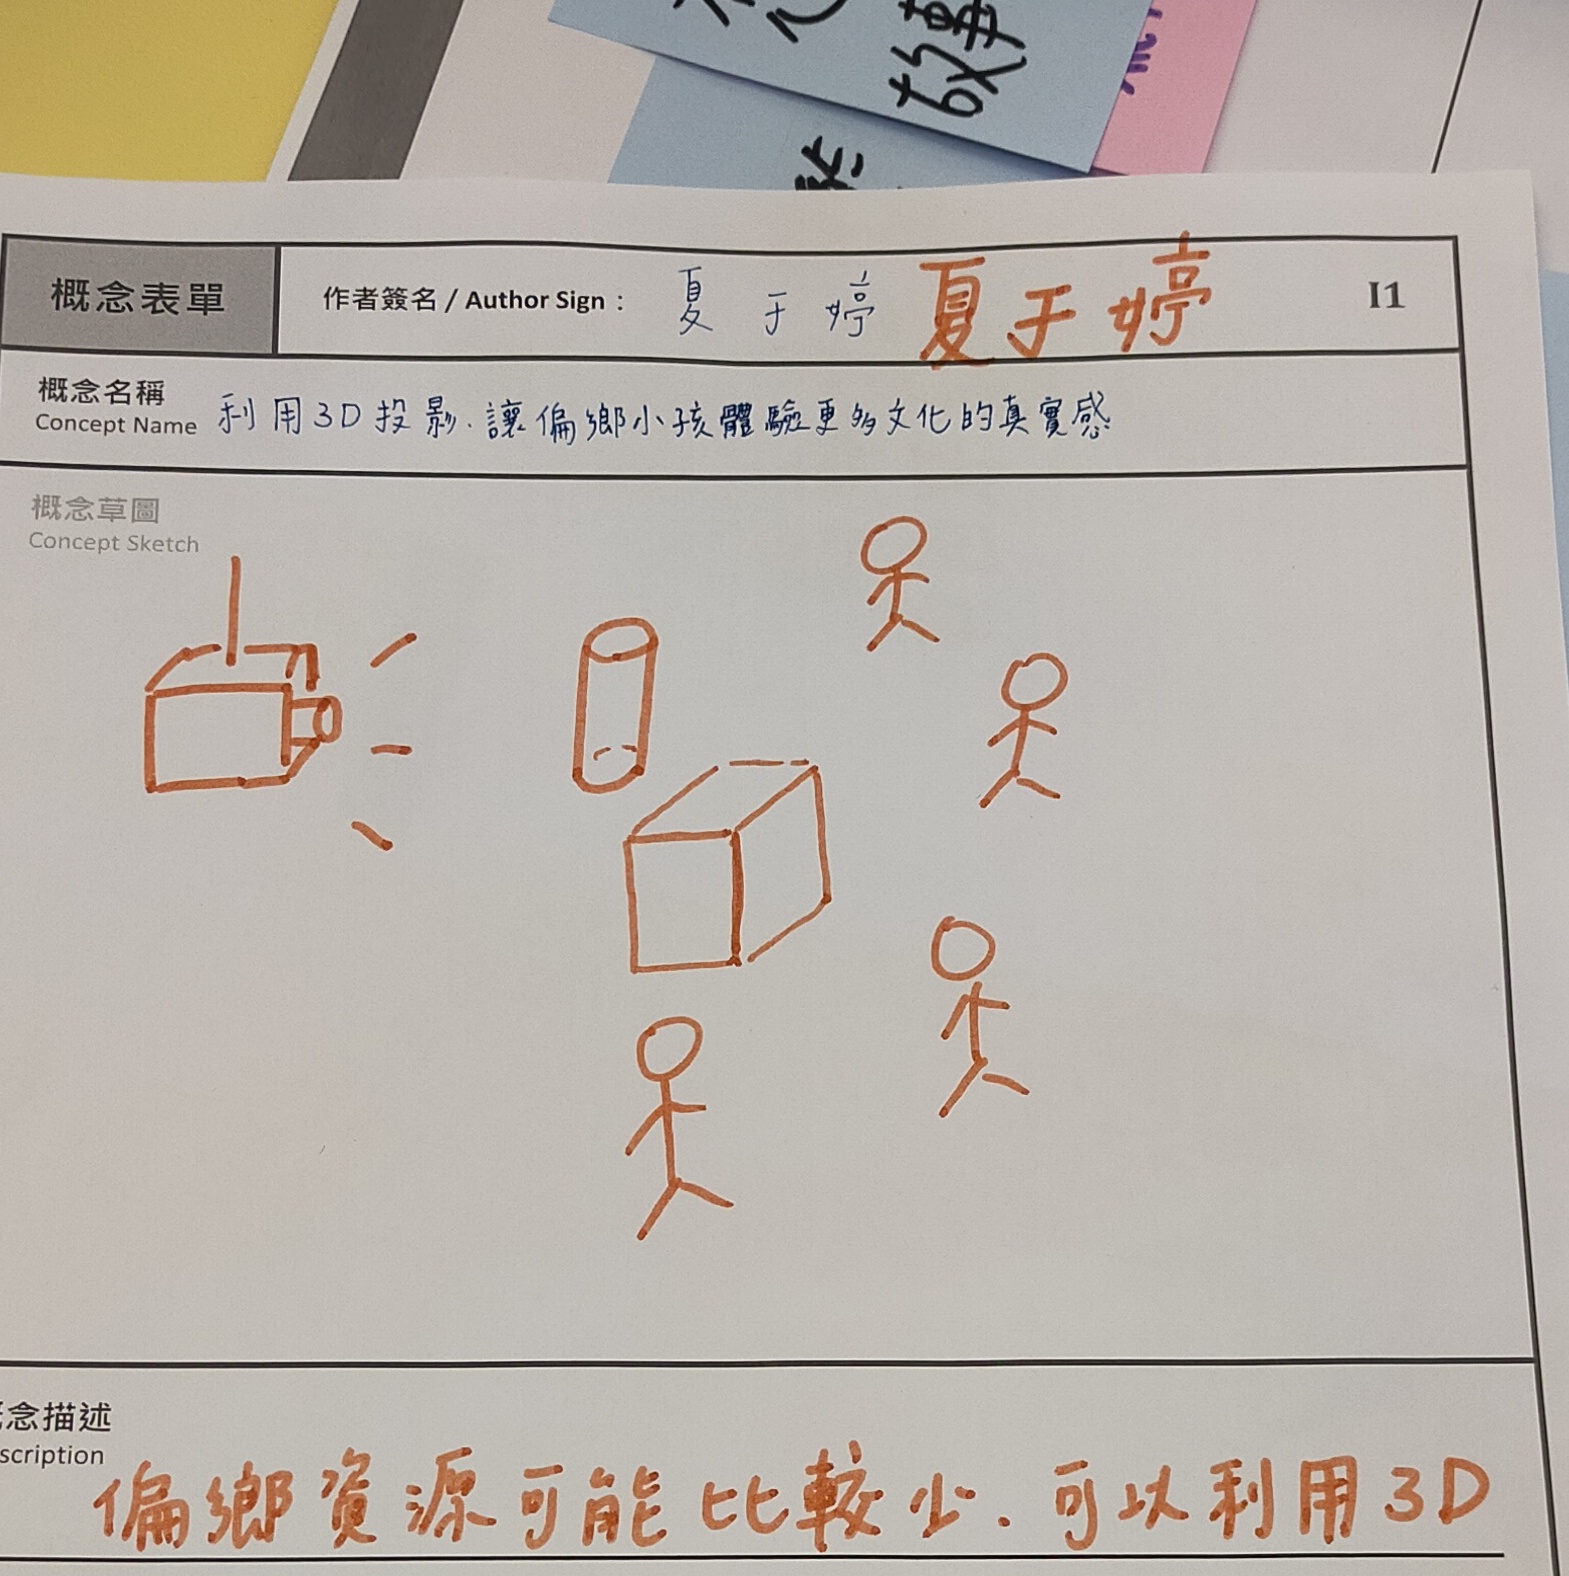 故事
概念表單
作者簽名 / Author Sign： 夏于婷 夏于婷 I1
概念名稱
Concept Name 利用3D投影.讓偏鄉小孩體驗更多文化的真實感
概念草圖
Concept Sketch
念描述
scription
偏鄉資源可能比較少.可以利用3D